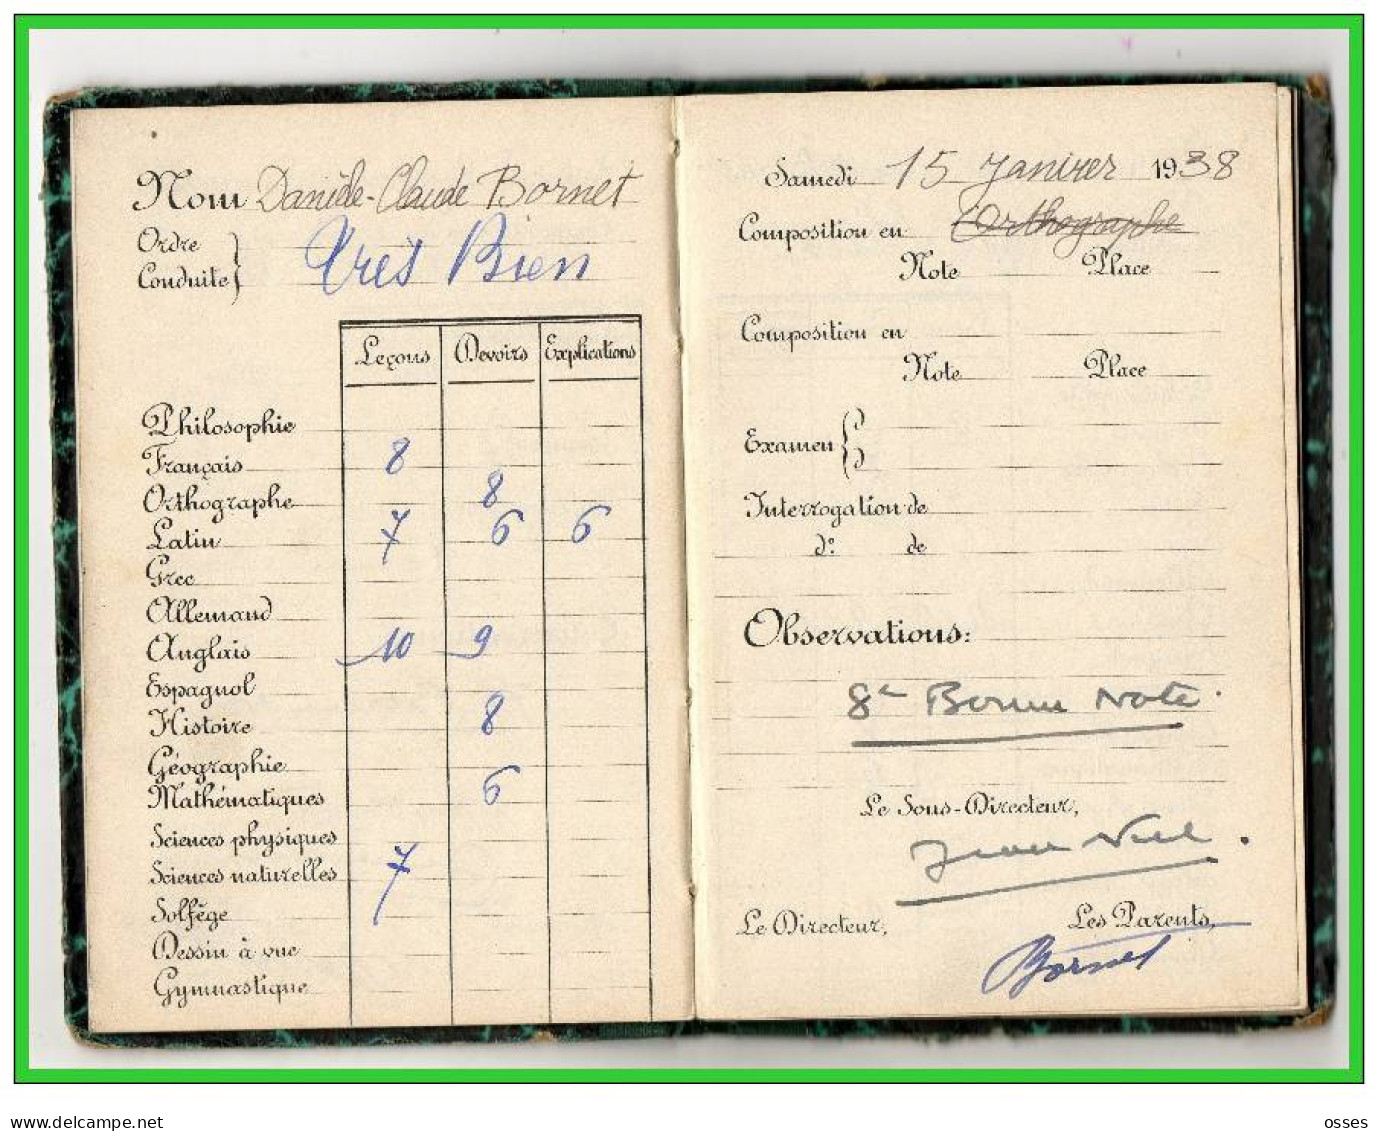 Nom Danièle-Claude Bornet
Ordre
Conduite
Très Bien
Leçons Devoirs Explications
Philosophie
Français 8
Orthographe 8
Latin 7 6 6
Grec
Allemand
Anglais 10 9
Espagnol
Histoire 8
Géographie
Mathématiques 6
Sciences physiques
Sciences naturelles 7
Solfège
Dessin à vue
Gymnastique
Samedi 15 Janvier 1938
Composition en Orthographe
Note Place
Composition en
Note Place
Examen
Interrogation de
d° de
Observations:
8e Bonne Note.
Le Sous-Directeur,
Jean
Le Directeur,
Les Parents,
Bornet
delcampe.net
osses